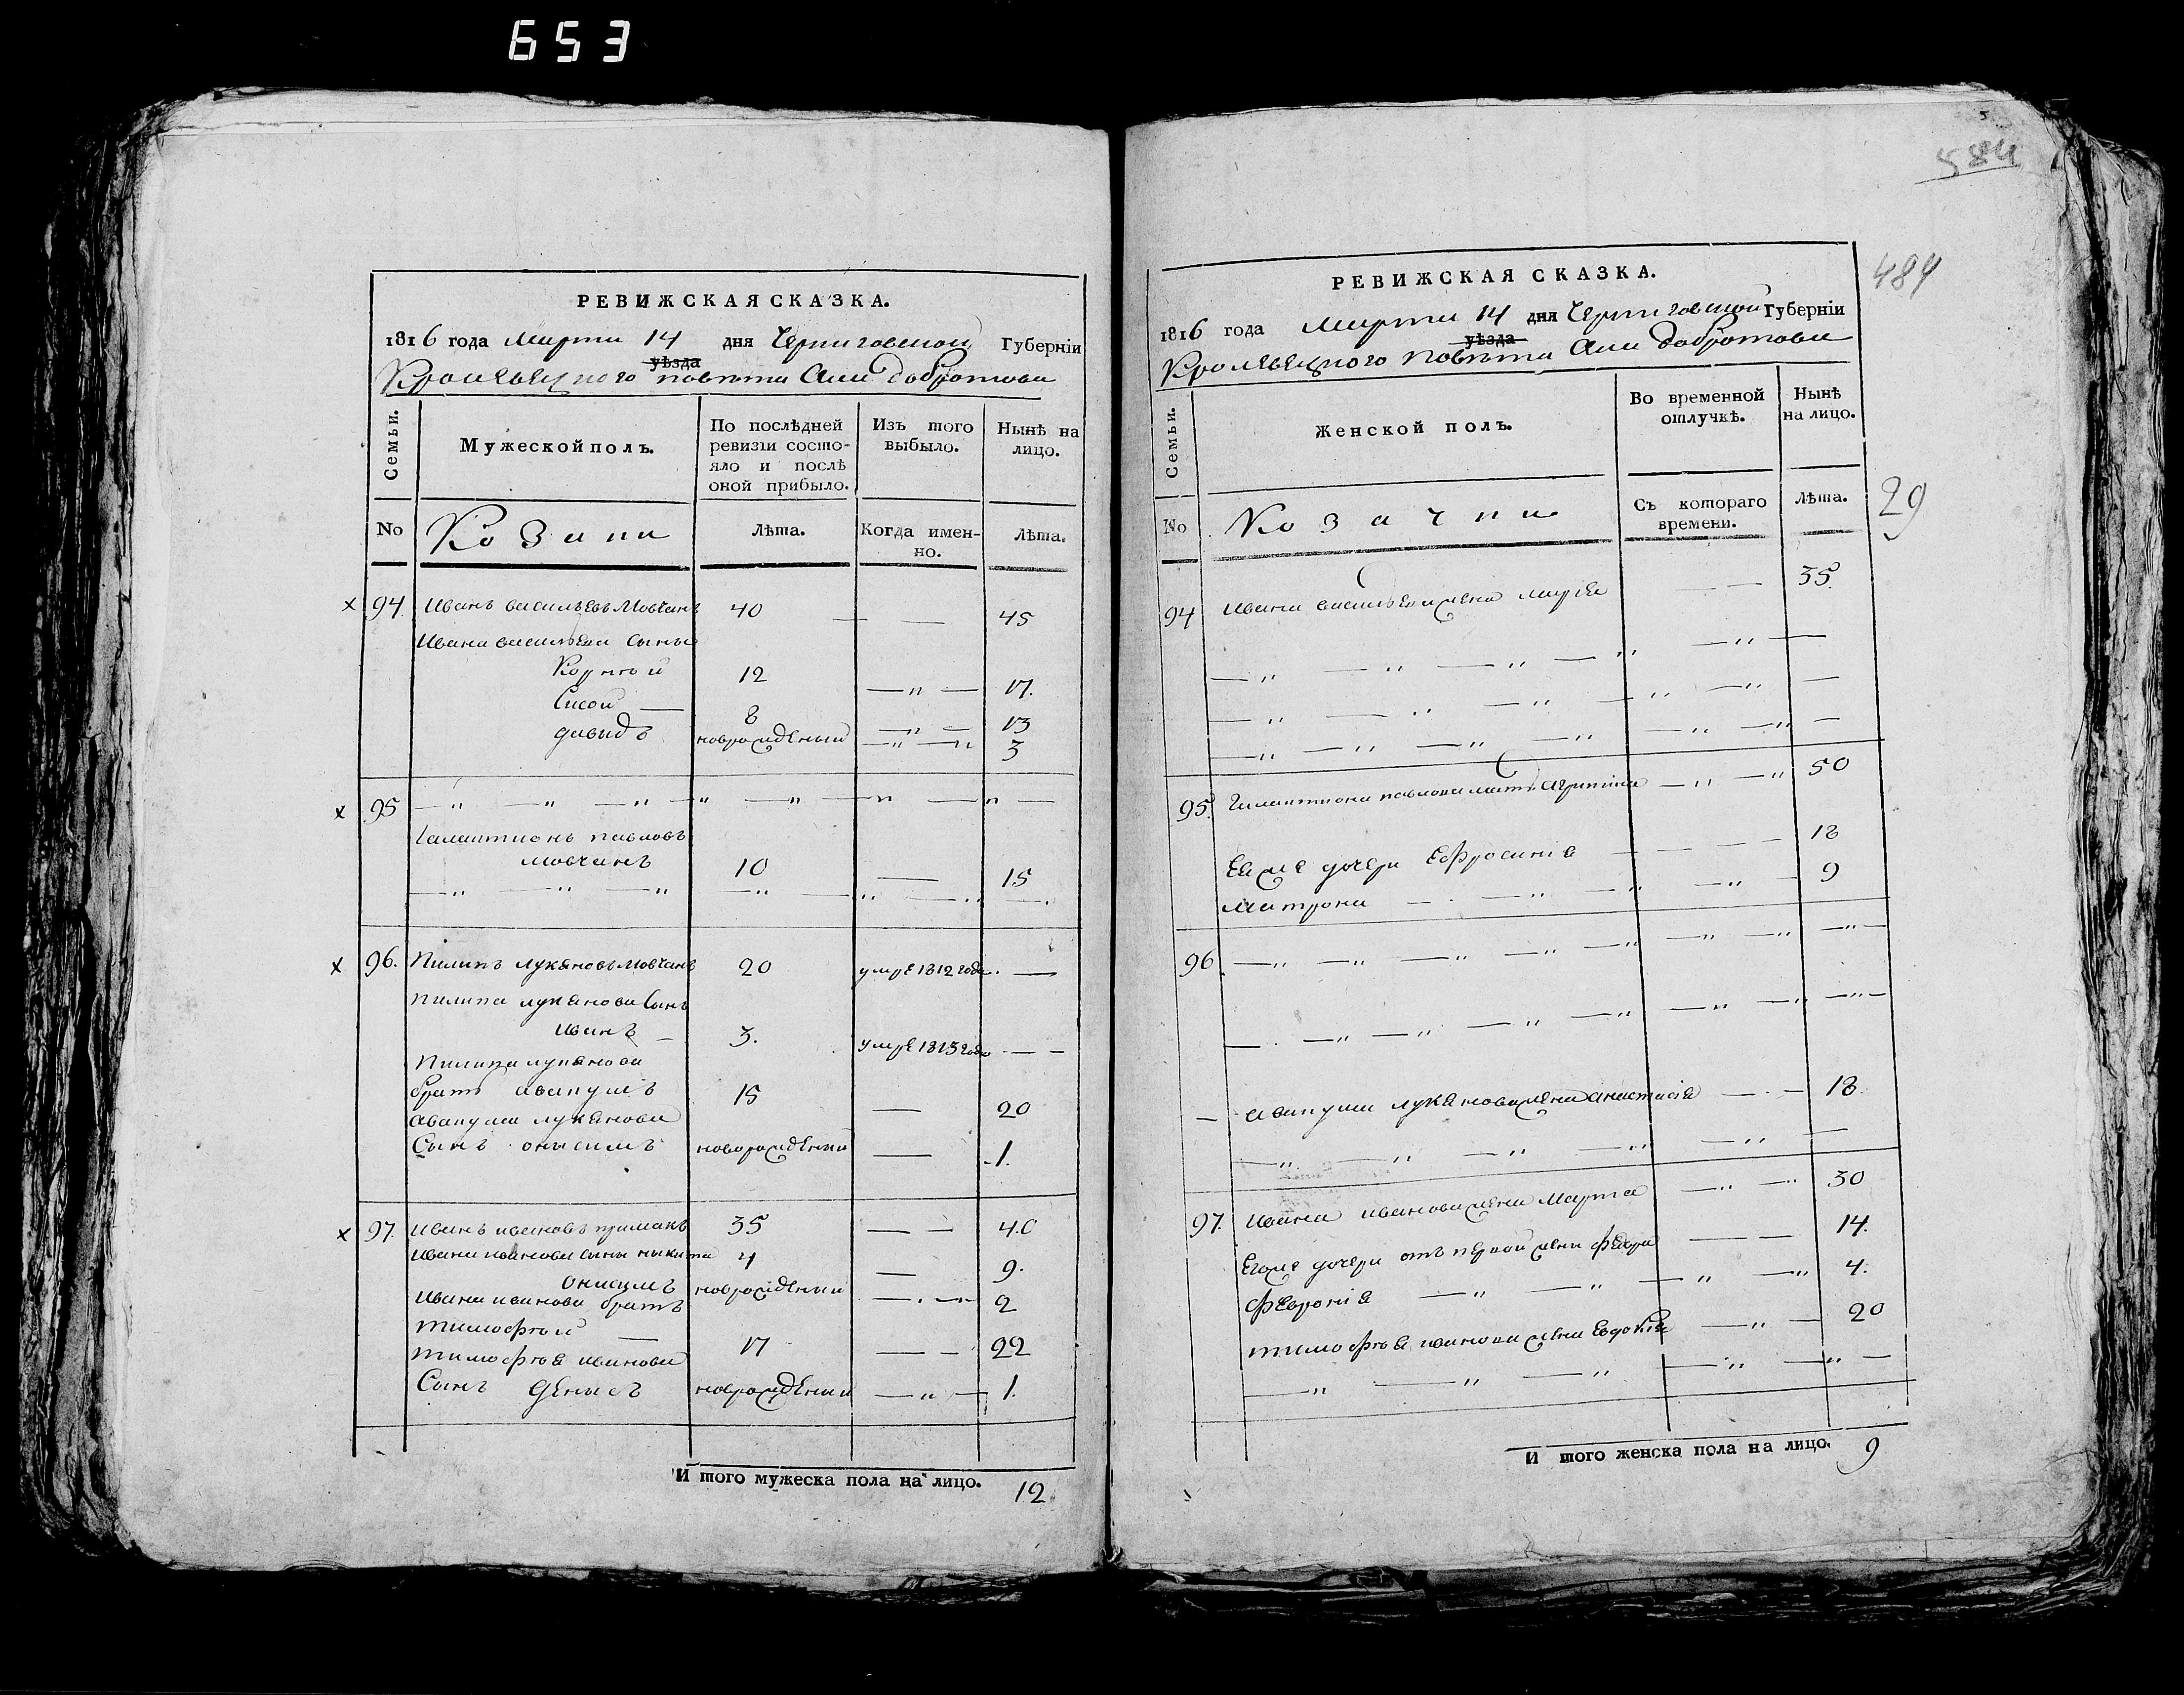 653
РЕВИЖСКАЯ СКАЗКА.
1816 года Марта 14 дня Черниговской Губерніи
уѣзда
Кролевецкого повѣта Села Добротова
Семьи.
Мужеской полъ.
По послѣдней ревизіи состо-
яло и послѣ оной прибыло.
Изъ того выбыло.
Нынѣ на лицо.
No
Козаки
Лѣта.
Когда имен-
но.
Лѣта.
х 94. Иванъ васильевъ Мовчанъ 40 — — 45
Ивана васильева сыны
Корнѣй 12 — " — 17.
Сисой — 8 — " — 13
давыдъ новрожденый — " — " 3
х 95 — " — " — " — " — " — " — " —
Галактионъ павловъ
мовчанъ 10 — 15
— " — " — " — " — " — " — .
х 96. Пилипъ лукяновъ Мовчанъ 20 умре 1812 года. —
пилипа лукянова Сынъ
иванъ — 3. умре 1813 года — —
Пилипа лукянова
братъ авакумъ 15 — 20
авакума лукянова
Сынъ онисимъ новорожденый — 1.
х 97. Иванъ ивановъ примакъ 35 — — 40
Ивана иванова сыны никита 4 — 9.
онисимъ новрожденый — " — 2
Ивана иванова братъ
тимофѣй — 17 — — 22
тимофѣя иванова
Сынъ денисъ новрожденый — " — 1.
И того мужеска пола на лицо. 12
584
484
29
РЕВИЖСКАЯ СКАЗКА.
1816 года Марта 14 дня Черниговской Губерніи
уѣзда
Кролевецкого повѣта Села Добротова
Семьи.
Женской полъ.
Во временной отлучкѣ.
Нынѣ на лицо.
No
Козачки
Съ котораго времени.
Лѣта.
94 Ивана васильева жена марія — 35.
— " — " — " — " — " —
— " — " — " — " — " —
— " — " — " — " — " — " —
95. Галактиона павлова мать агрипина — " — " 50
Еяже дочери Ефросинія — — — 18
Матрона — . — " — " — " — 9
96 — " — " — " — " — " — " — " — " —
— . — " — " — " — " — " — " — " —
— авакума лукянова жена анастасія — . — 18.
— " — " — " — " — " —
97. Ивана иванова жена Марта — " — " 30
Егоже дочери отъ первой жены — — 14.
февронія — " — " — " — " 4.
тимофѣя иванова жена Евдокія — " — 20
— " — " — " — " — " —
И того женска пола на лицо. 9